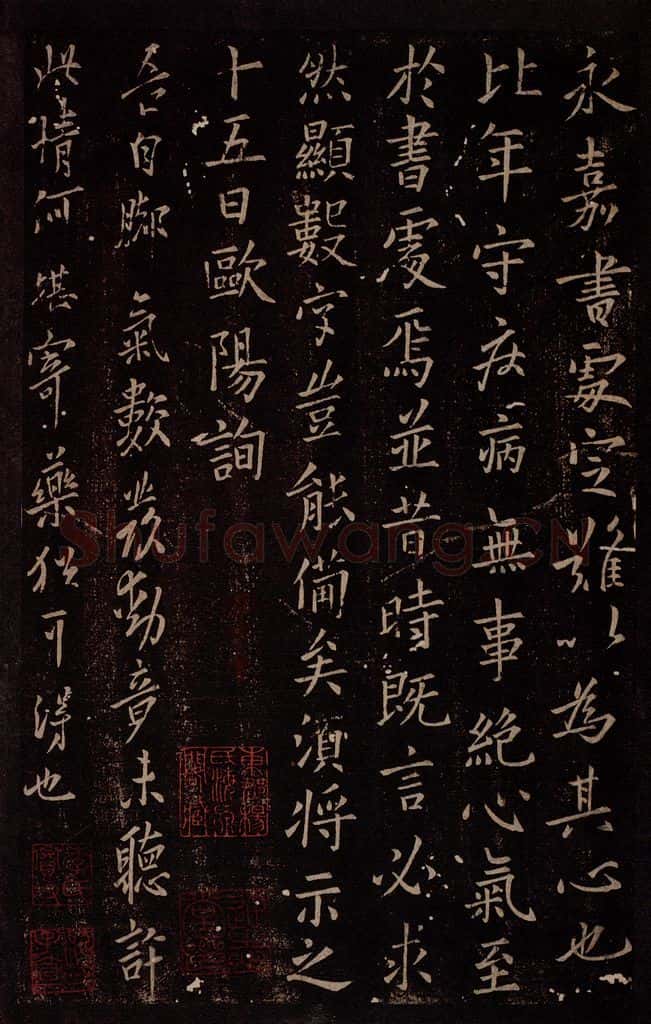 永嘉書處定難以為其心也
比年守疾病無事絕心氣至
於書處焉並昔時既言必求
然顯數字豈能備矣須將示之
十五日歐陽詢
吾自腳氣數發動竟未聽許
此情何堪寄藥猶可得也
Shufawang.CN